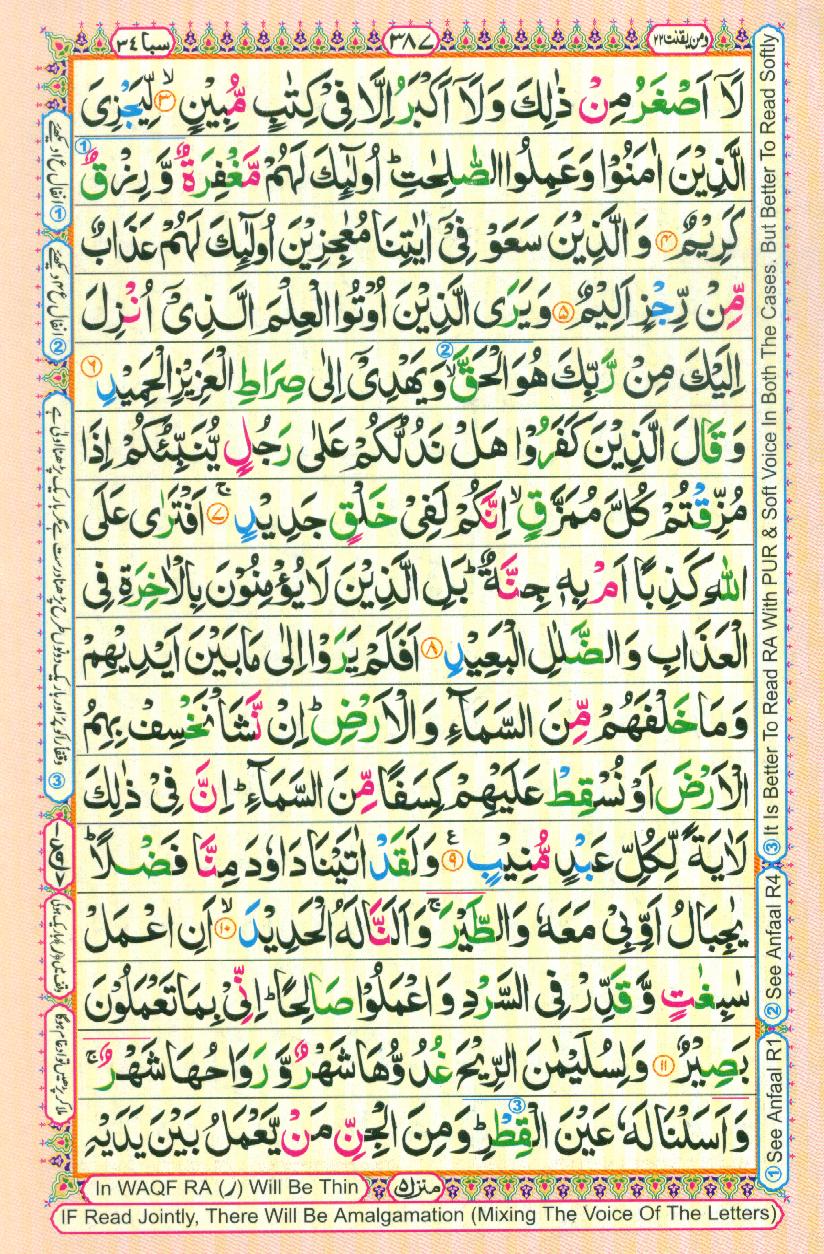 ومن یقنت ۲۲
۳۸۷
سبا ۳۴
لَاۤ اَصْغَرُ مِنْ ذٰلِكَ وَلَاۤ اَكْبَرُ اِلَّا فِیْ كِتٰبٍ مُّبِیْنٍ ۙ﴿۳﴾ لِّیَجْزِیَ
الَّذِیْنَ اٰمَنُوْا وَعَمِلُوا الصّٰلِحٰتِ ؕ اُولٰٓىِٕكَ لَهُمْ مَّغْفِرَةٌ وَّ رِزْقٌ
كَرِیْمٌ ﴿۴﴾ وَ الَّذِیْنَ سَعَوْ فِیْۤ اٰیٰتِنَا مُعٰجِزِیْنَ اُولٰٓىِٕكَ لَهُمْ عَذَابٌ
مِّنْ رِّجْزٍ اَلِیْمٌ ﴿۵﴾ وَیَرَی الَّذِیْنَ اُوْتُوا الْعِلْمَ الَّذِیْۤ اُنْزِلَ
اِلَیْكَ مِنْ رَّبِّكَ هُوَ الْحَقَّ ۙ وَیَهْدِیْۤ اِلٰی صِرَاطِ الْعَزِیْزِ الْحَمِیْدِ ﴿۶﴾
وَقَالَ الَّذِیْنَ كَفَرُوْا هَلْ نَدُلُّكُمْ عَلٰی رَجُلٍ یُّنَبِّئُكُمْ اِذَا
مُزِّقْتُمْ كُلَّ مُمَزَّقٍ ۙ اِنَّكُمْ لَفِیْ خَلْقٍ جَدِیْدٍ ۚ﴿۷﴾ اَفْتَرٰی عَلَی
اللّٰهِ كَذِبًا اَمْ بِهٖ جِنَّةٌ ؕ بَلِ الَّذِیْنَ لَا یُؤْمِنُوْنَ بِالْاٰخِرَةِ فِی
الْعَذَابِ وَالضَّلٰلِ الْبَعِیْدِ ﴿۸﴾ اَفَلَمْ یَرَوْا اِلٰی مَا بَیْنَ اَیْدِیْهِمْ
وَمَا خَلْفَهُمْ مِّنَ السَّمَآءِ وَالْاَرْضِ ؕ اِنْ نَّشَاْ نَخْسِفْ بِهِمُ
الْاَرْضَ اَوْ نُسْقِطْ عَلَیْهِمْ كِسَفًا مِّنَ السَّمَآءِ ؕ اِنَّ فِیْ ذٰلِكَ
لَاٰیَةً لِّكُلِّ عَبْدٍ مُّنِیْبٍ ﴿۹﴾ وَلَقَدْ اٰتَیْنَا دَاوٗدَ مِنَّا فَضْلًا ؕ
یٰجِبَالُ اَوِّبِیْ مَعَهٗ وَالطَّیْرَ ۚ وَاَلَنَّا لَهُ الْحَدِیْدَ ۙ﴿۱۰﴾ اَنِ اعْمَلْ
سٰبِغٰتٍ وَّقَدِّرْ فِی السَّرْدِ وَاعْمَلُوْا صَالِحًا ؕ اِنِّیْ بِمَا تَعْمَلُوْنَ
بَصِیْرٌ ﴿۱۱﴾ وَلِسُلَیْمٰنَ الرِّیْحَ غُدُوُّهَا شَهْرٌ وَّرَوَاحُهَا شَهْرٌ ۚ
وَاَسَلْنَا لَهٗ عَیْنَ الْقِطْرِ ؕ وَمِنَ الْجِنِّ مَنْ یَّعْمَلُ بَیْنَ یَدَیْهِ
منزل ۵
In WAQF RA (ر) Will Be Thin
IF Read Jointly, There Will Be Amalgamation (Mixing The Voice Of The Letters)
① See Anfaal R1
② See Anfaal R4
③ It Is Better To Read RA With PUR & Soft Voice In Both The Cases. But Better To Read Softly
① انفال ع۱ دیکھئے
② انفال ع۴ دیکھئے